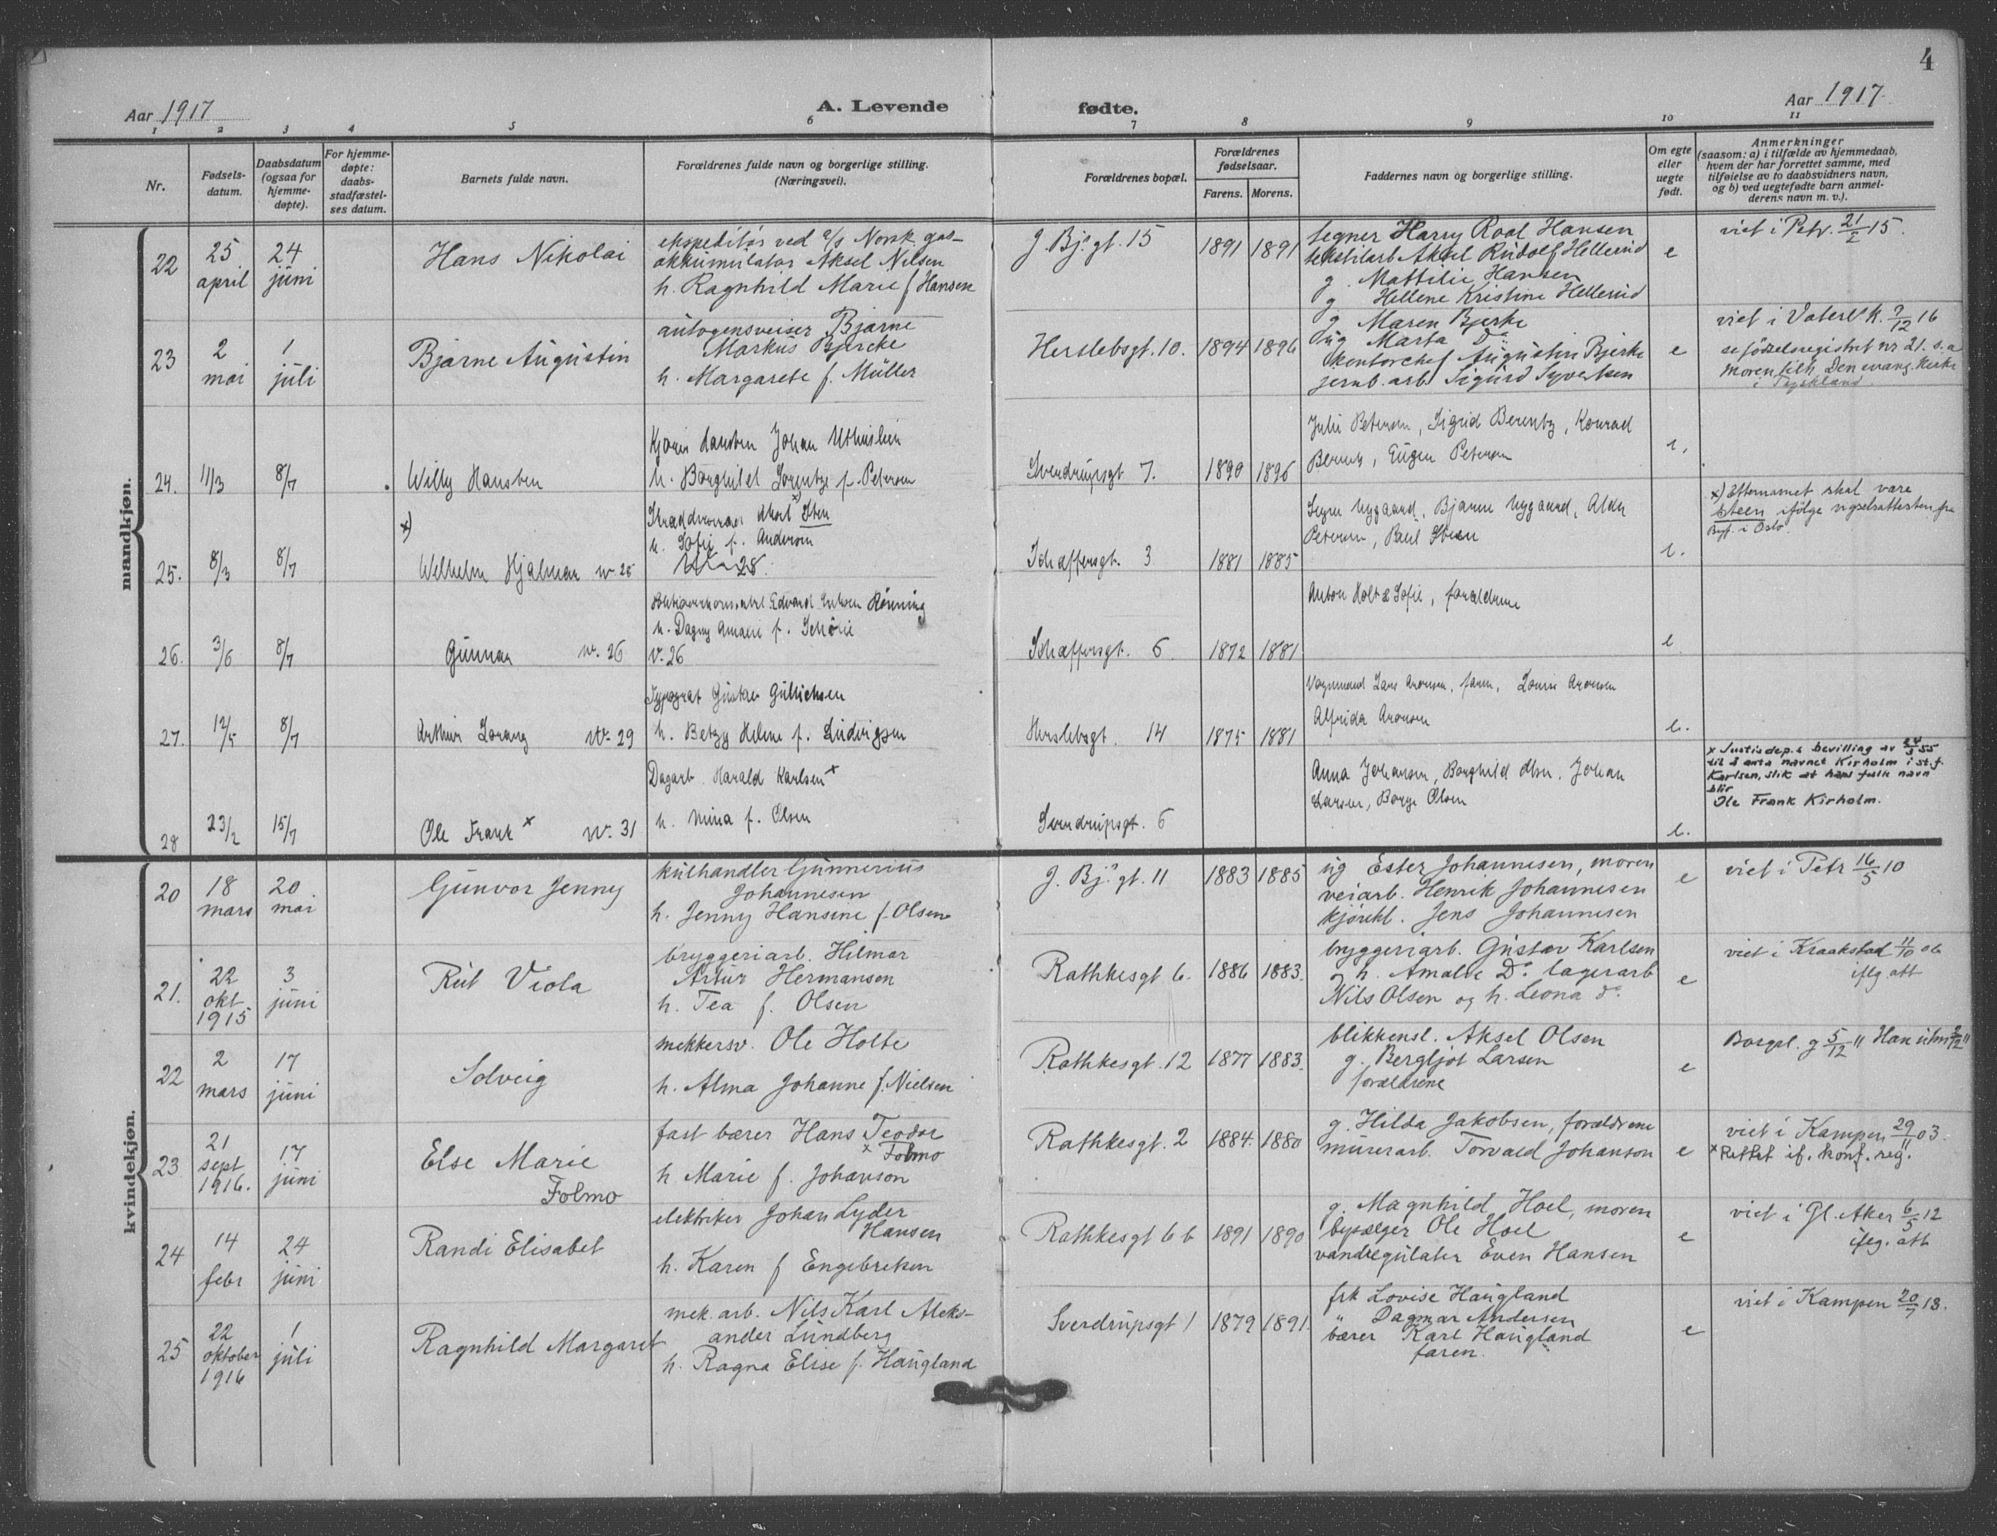 4
Aar 1917
A. Levende fødte.
Aar 1917
1 2 3 4 5 6 7 8 9 10 11
Nr.
Fødsels-
datum.
Daabsdatum
(ogsaa for
hjemme-
døpte).
For hjemme-
døpte:
daabs-
stadfæstel-
ses datum.
Barnets fulde navn.
Forældrenes fulde navn og borgerlige stilling.
(Næringsvei).
Forældrenes bopæl.
Forældrenes
fødselsaar.
Farens. Morens.
Faddernes navn og borgerlige stilling.
Om egte
eller
uegte
født.
Anmerkninger
(saasom: a) i tilfælde av hjemmedaab,
hvem der har forrettet samme, med
tilføielse av to daabsvidners navn,
og b) ved uegtefødte barn anmel-
derens navn m. v.).
mandkjøn.
22
25
april
24
juni
Hans Nikolai
ekspeditør ved a/s Norsk gas-
akkumulator Aksel Nilsen
h. Ragnhild Marie f Hansen
g. Bj.s gt. 15
1891 1891
tegner Harry Roal Hansen
tekstilarb Aksel Rudolf Hellerud
g. Mathilie Hansen
g Hellene Kristine Hellerud
e
viet i Petr. 21/2 15.
23
2
mai
1
juli
Bjarne Augustin
autogensveiser Bjarne
Markus Bjercke
h. Margarete f. Müller
Herslebsgt. 10.
1894 1896
g Maren Bjerke
ug Marta Do
kontorchef Augustin Bjerke
jernb. arb Sigurd Syvertsen
e
viet i Vaterl k. 9/12 16
se fødselsregistret nr 21. s. a
Moren tilh. Den evang. Kirke
i Tyskland.
24.
11/3
8/7
Willy Hansten
h. Borghild Lorentze f. Petersen
Sverdrupsgt 7.
1890 1896
Julie Petersen, Sigrid Berentz, Konrad
Berentz, Eugen Petersen
e.
25.
8/3
8/7
x)
Wilhelm Hjalmar nr 25
h. Sofie f. Andersen
Schæffersgt. 3
1881 1885
Signe Nygaard, Bjarne Nygaard, Alda
Petersen, Paul Steen
e.
x) Efternavnet skal være
Steen ifölge vigselsattesten fra
Byf. i Oslo
26.
3/6
8/7
Gunnar nr. 26
h. Dagny Amalie f. Schörie
nr. 26
Schæffersgt. 6
1872 1881
Anton Holt & Sofie, forældrene
e.
27.
12/5
8/7
Arthur Lorang nr. 29
Typograf Gustav Gullichsen
h. Betzy Helene f. Ludvigsen
Herslebsgt. 14
1875 1881
Vognmand Lars Aronsen, faren, Louise Aronsen
Alfrida Aronsen
e.
28
23/2
15/7
Ole Frank x nr. 31
Dagarb. Harald Karlsen x
h. Mina f. Olsen
Sverdrupsgt. 6
Anna Johansen, Borghild Olsen, Johan
Larsen, Borge Olsen
e.
x Justisdep.s bevilling av 24/3 55
til å anta navnet Kirholm i st. f.
Karlsen, slik at hans fulle navn
blir
Ole Frank Kirholm.
kvindekjøn.
20
18
mars
20
mai
Gunvor Jenny
kulhandler Gunnerius
Johannesen
h. Jenny Hansine f. Olsen
g. Bj.s gt. 11
1883 1885
ug Ester Johannesen, moren
veiarb. Henrik Johannesen
kjørekl. Jens Johannesen
e
viet i Petr 16/5 10
21.
22
okt
1915
3
juni
Rut Viola
bryggeriarb. Hilmar
Artur Hermansen
h. Tea f. Olsen
Rathkesgt 6.
1886 1883.
bryggeriarb. Gustav Karlsen
og h. Amalie Do lagerarb
Nils Olsen og h. Leona do.
e
viet i Kraakstad 11/10 06
iflg att
22
2
mars
17
juni
Solveig
mekkersv. Ole Holte
h. Alma Johanne f. Nielsen
Rathkesgt. 12
1877 1883.
blikkensl. Aksel Olsen
g. Bergljot Larsen
forældrene
e
Borgel. g 5/12 11
23
21
sept
1916.
17
juni
Else Marie
Folmo
fast bærer Hans Teodor
x Folmo
h Marie f. Johanson
Rathkesgt. 2
1884. 1880
g. Hilda Jakobsen, forældrene
murerarb. Torvald Johanson
e
viet i Kampen 29/11 03.
x Rettet if. konf. reg.
24
14
febr
24
juni
Randi Elisabet
elektriker Johan Lyder
Hansen
h. Karen f Engebretsen
Rathkesgt 6 b
1891 1890
g. Magnhild Hoel, moren
bysælger Ole Hoel
vandregulatør Even Hansen
e
viet i Gl. Aker 6/5 12
iflg. att
25
22
oktober
1916
1
juli
Ragnhild Margaret
mek. arb. Nils Karl Aleks-
ander Lundberg
h. Ragna Elise f. Haugland
Sverdrupsgt 1
1879 1891.
frk Lovise Haugland
" Dagmar Andersen
bærer Karl Haugland
faren.
e
viet i Kampen 20/7 13.